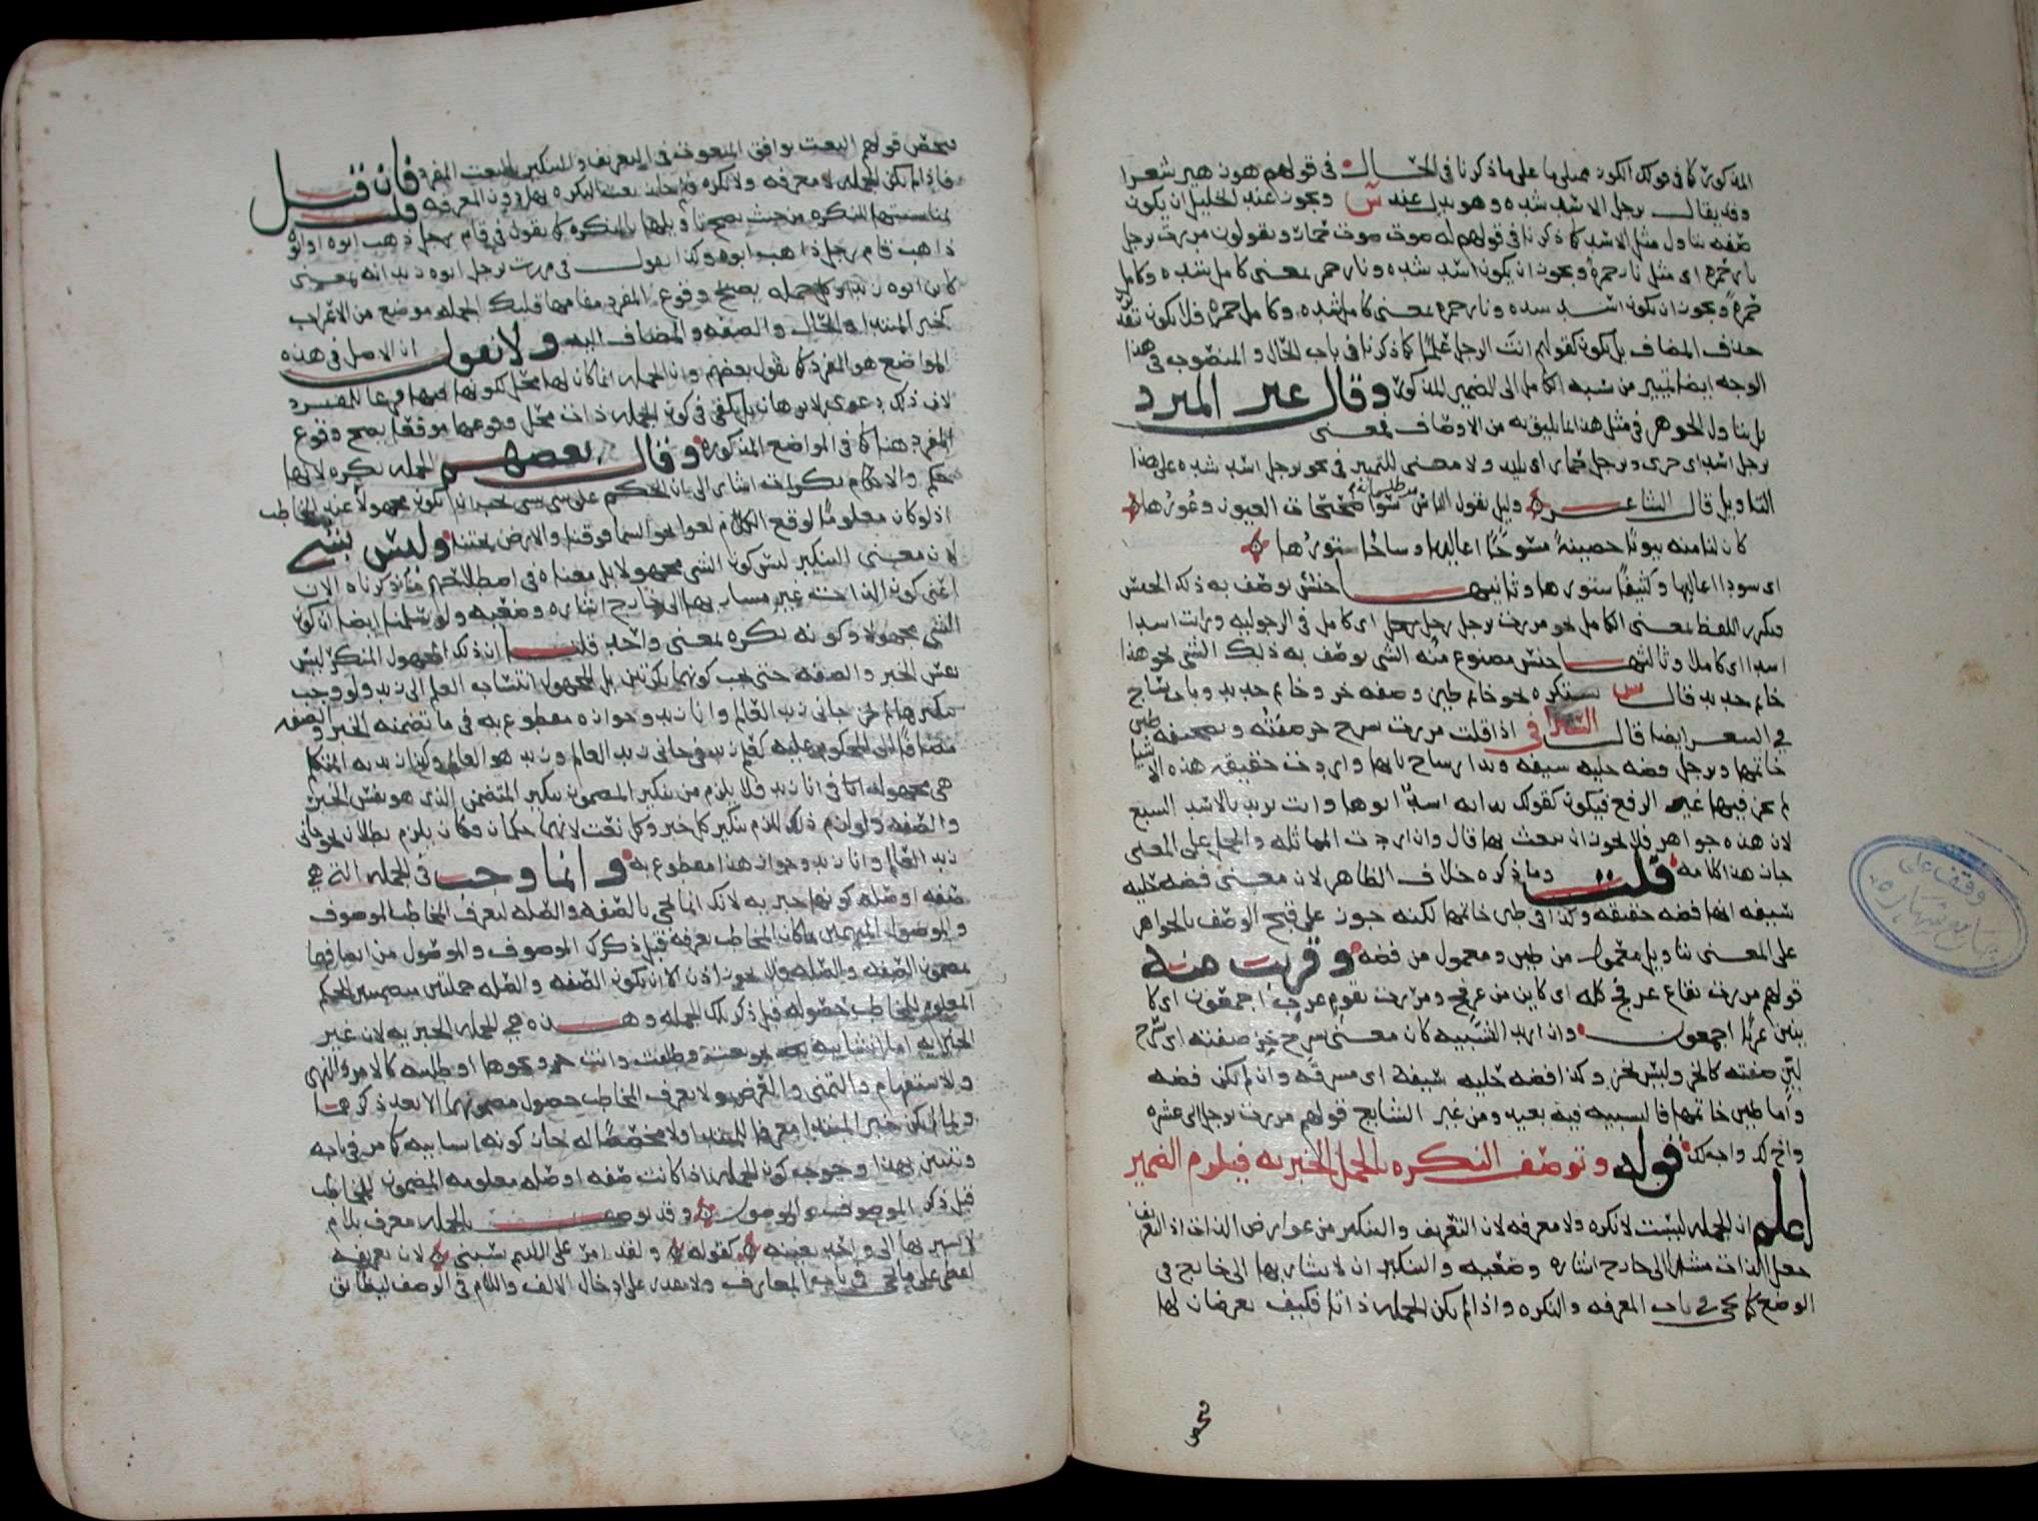 المذكورة كما في قولك الكون مبنيا على ما ذكرنا في الحال في قولهم هو زهير شعرا
وقد يقال برجل الاسد شده وهو بدل عند س ويجوز عند الخليل ان يكون
صفه بتاويل مثل الاسد كما ذكرنا في قولهم له صوت صوت حمار وتقولون مررت برجل
نار حمرة اي مثل نار حمرة ويجوز ان يكون اسد شده ونار حمره بمعنى كامل شده وكامل
حمرة ويجوز ان يكون اسد شده ونار حمره بمعنى كامل شده وكامل حمره فلا يكون بتقدير
حذف المضاف بل يكون كقولهم انت الرجل علما كما ذكرنا في باب الحال والمنصوب في هذا
الوجه ايضا تمييز من نسبه الكامل الى الضمير المذكور وقال غير المبرد
بل بتاول الجوهر في مثل هذا بما يليق به من الاوصاف فمعنى
برجل اسد اي جري وبرجل حمار اي بليد ولا معنى للتمييز في نحو برجل اسد شده على هذا
التاويل قال الشاعر وليل يقول الناس من ظلماته سوا صحيحات العيون وعورها
كان لنا منه بيوتا حصينة مسوحا اعاليها وساجا ستورها
اي سودا اعاليها وكثيفا ستورها وثانيها جنس يوصف به ذلك الجنس
فيكرر اللفظ بمعنى الكامل نحو مررت برجل رجل اي كامل في الرجوليه ورايت اسدا
اسدا اي كاملا وثالثها جنس مصنوع منه الشي يوصف به ذلك الشي نحو هذا
خاتم حديد قال س يستكره نحو خاتم طين وصفه خز وخاتم حديد وباب ساج
في الشعر ايضا قال السيرافي اذا قلت مررت بسرج خز صفته وبصحيفه طين
خاتمها وبرجل فضه حليه سيفه وبدار ساج بابها واردت حقيقه هذه الاشيا
لم يجز فيها غير الرفع فيكون كقولك بدابه اسد ابوها وانت تريد بالاسد السبع
لان هذه جواهر فلا يجوز ان ينعت بها قال وان اردت المماثله والحمل على المعنى
جاز هذا كلامه قلت وما ذكره خلاف الظاهر لان معنى فضه حليه
سيفه انها فضه حقيقه وكذا في طين خاتمها لكنه جوز على قبح الوصف بالجواهر
على المعنى بتاويل معمول من طين ومعمول من فضه وقريب منه
قولهم مررت بقاع عرفج كله اي كاين من عرفج ومررت بقوم عرب اجمعون اي كا
ينين عربا اجمعون وان اريد التشبيه كان معنى بسرج خز صفته اي بسرج
لين صفته كالخز وليس بخز وكذا فضه حليه سيفه اي مشرقه وان لم يكن فضه
واما طين خاتمها فالتشبيه فيه بعيد ومن غير الشايع قولهم مررت برجل ابي عشره
واخ لك واب لك قوله وتوصف النكره بالجمل الخبريه فيلزم الضمير
اعلم ان الجمله ليست نكره ولا معرفه لان التعريف والتنكير من عوارض الذات اذ التعريف
جعل الذات مشارا الى خارج اشاره وضعيه والتنكير ان لا يشار بها الى خارج في
الوضع كما يجي في باب المعرفه والنكره واذا لم يكن الجمله ذاتا فكيف يعرضان لها
فيخص قولهم النعت يوافق المنعوت في التعريف والتنكير بالنعت المفرد فان قيل
فاذا لم تكن الجمله لا معرفه ولا نكره فلم جاز نعت النكره بها دون المعرفه قلت
لمناسبتها للنكره من حيث يصح تاويلها بالنكره كما تقول في قام رجل ذهب ابوه او ابوه
ذاهب قام رجل ذاهب ابوه وكذا تقول في مررت برجل ابوه زيد انه بمعنى
كاين ابوه زيدا وكل جمله يصح وقوع المفرد مقامها فلتلك الجمله موضع من الاعراب
كخبر المبتدا والحال والصفه والمضاف اليه ولا نقول ان الاصل في هذه
المواضع هو المفرد كما يقول بعضهم وان الجمله انما كان لها محل لكونها فيها فرعا للمفرد
لان ذلك دعوى بلا برهان بل يكفي في كون الجمله ذات محل وقوعها موقعا يصح وقوع
المفرد هناك كما في المواضع المذكوره وقال بعضهم الجمله نكره لانها
حكم والاحكام نكرات اشار الى ان الحكم على شي بشي يجب ان يكون مجهولا عند المخاطب
اذ لو كان معلوما لوقع الكلام لغوا نحو السما فوقنا والارض تحتنا وليس بشي
لان معنى التنكير ليس كون الشي مجهولا بل معناه في اصطلاحهم ما ذكرناه الان
اعني كون الذات غير مشار بها الى خارج اشاره وضعيه ولو سلمنا ايضا ان كون
الشي مجهولا وكونه نكره بمعنى واحد قلنا ان ذلك المجهول المنكر ليس
نفس الخبر والصفه حتى يجب كونهما نكرتين بل المجهول انتساب العلم الى زيد ولو وجب
تنكيرهما لم يجز جاني زيد العالم وانا زيد وجوازه مقطوع به في ما تضمنه الخبر والصفه
مضافا الى المحكوم عليه كعلم زيد في جاني زيد العالم وزيد هو العالم وكون زيد به المتكلم
هي مجهوله اما في انا زيد فلا يلزم من تنكير المضمون تنكير المتضمن الذي هو نفس الخبر
والصفه ولو لزم ذلك للزم تنكير كل خبر وكل نعت لانهما حكمان وكان يلزم بطلان نحو جاني
زيد العالم وانا زيد وجواز هذا مقطوع به وانما وجب في الجمله التي هي
صفه او صله كونها خبريه لانك انما تجي بالصفه والصله لتعرف المخاطب الموصوف
والموصول المبهمين بما كان المخاطب يعرفه قبل ذكرك الموصوف والموصول من اتصافهما
بمضمون الصفه والصله ولا يجوز اذن الا ان تكون الصفه والصله جملتين متضمنتين للحكم
المعلوم للمخاطب حصوله قبل ذكر تلك الجمله وهذه هي الجمله الخبريه لان غير
الخبريه اما انشاييه نحو بعت وطلقت وانت حر ونحوها او طلبيه كالامر والنهي
والاستفهام والتمني والعرض ولا يعرف المخاطب حصول مضمونها الا بعد ذكرها
ولما لم يكن خبر المبتدا معرفا للمبتدا ولا مخصصا له جاز كونه انشاييه كما مر في بابه
وتبين بهذا وجوب كون الجمله اذا كانت صفه او صله معلومه المضمون للمخاطب
قبل ذكر الموصوف والموصول وقد يوصف بالجمله معرف بلام
لا يشير بها الى واحد بعينه كقوله ولقد امر على اللئيم يسبني لان تعريفه
لفظي على ما يجي في باب المعارف ولا يقدر على ادخال الالف واللام في الوصف ليطابق
وقف على